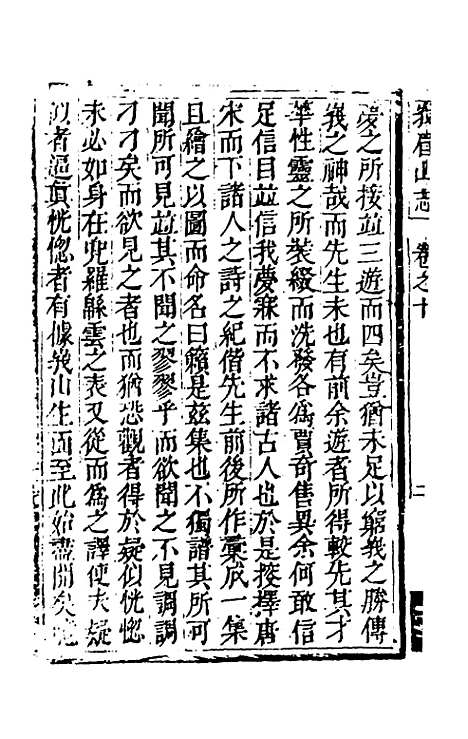 峩眉山志
卷之十
二
夢之所接並三遊而四矣豈猶未足以窮峩之勝傳
峩之神哉而先生未也有前余遊者所得較先其才
華性靈之所裝綴而洗發各為賈奇售異余何敢信
足信目並信我夢寐而不求諸古人也於是按擇唐
宋而下諸人之詩之紀偕先生前後所作彙成一集
且繪之以圖而命名曰籟是茲集也不獨譜其所可
聞所可見並其不聞之翏翏乎而欲聞之不見調調
刁刁矣而欲見之者也而猶恐觀者得於疑似恍惚
未必如身在兜羅緜雲之表又從而為之譯使夫疑
似者逼真恍惚者有據峩山生面至此始盡開矣